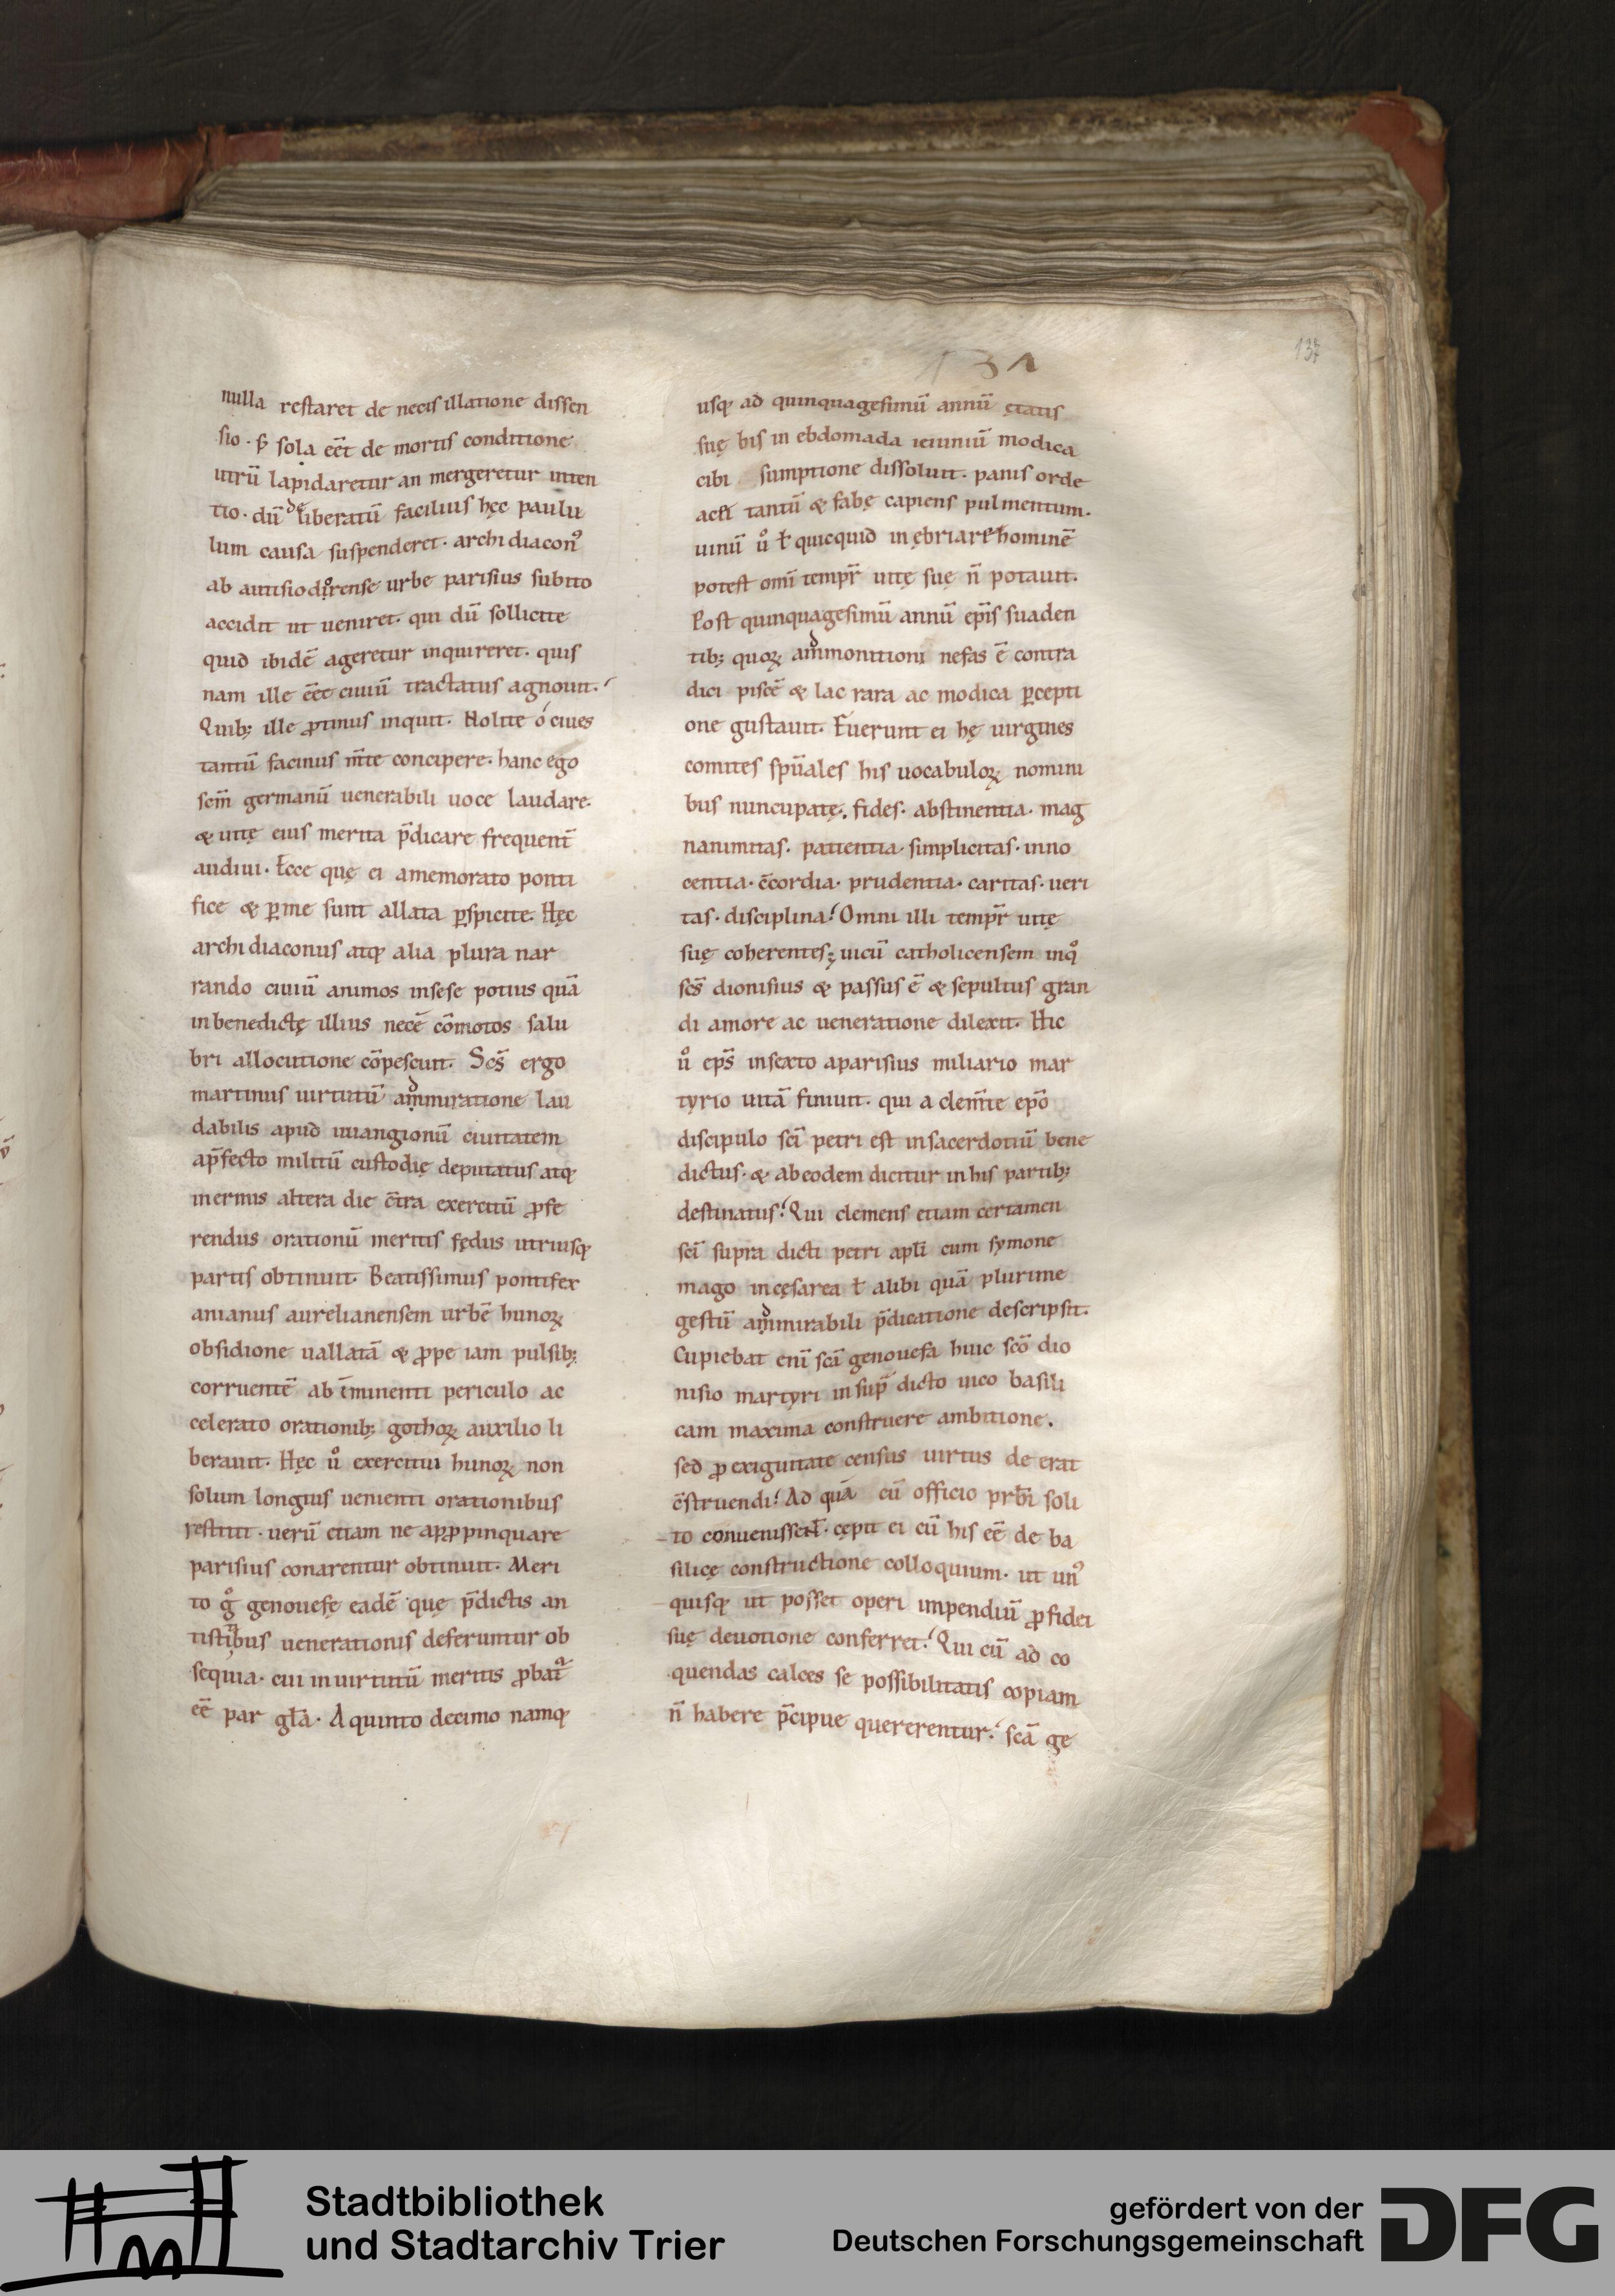 137
131
nulla restaret de necis illatione dissen
sio · s; sola eēt de mortis conditione
utrū lapidaretur an mergeretur inten
tio · dū deliberatū facilius hęc paulu
lum causa suspenderet · archidiaconꝰ
ab autisiodorense urbe parisius subito
accidit ut ueniret · qui dū sollicite
quid ibidē ageretur inquireret · quis
nam ille eēt ciuiū tractatus agnouit.
Quib; ille ꝓtinus inquit. Nolite ó ciues
tantū facinus m̄te concipere · hanc ego
sem̄ germanū uenerabili uoce laudare ·
& uitę eius merita p̄dicare frequent̄
audiui · Ecce quę ei amemorato ponti
fice & ꝑme sunt allata ꝑspicite. Hęc
archidiaconus atq; alia plura nar
rando ciuiū animos insese potius quā
inbenedictę illius necē cōmotos salu
bri allocutione cōpescuit. Scs̄ ergo
martinus uirtutū ammiratione lau
dabilis apud uuangionū ciuitatem
ap̄fecto militū custodię deputatus atq;
inermis altera die c̄tra exercitū ꝓfe
rendus orationū meritis fędus utriusq;
partis obtinuit. Beatissimus pontifex
anianus aurelianensem urbē hunoꝝ
obsidione uallatā & ꝓpe iam pulsib;
corruentē ab īminenti periculo ac
celerato orationib; gothoꝝ auxilio li
berauit. Hęc ů exercitui hunoꝝ non
solum longius uenienti orationibus
restitit · uerū etiam ne apꝓpinquare
parisius conarentur obtinuit. Meri
to g̊ genouefę eadē quę p̄dictis an
tistibus uenerationis deferuntur ob
sequia · cui inuirtutū meritis ꝓbat᷑
eē par gl̄a · A quinto decimo namq;
usq; ad quinquagesimū annū ętatis
suę bis in ebdomada ieiuniū modica
cibi sumptione dissoluit · panis orde
acei tantū & fabę capiens pulmentum.
uinū ů ł quicquid inębriare hominē
potest omī tempr̄ uitę suę n̄ potauit.
Post quinquagesimū annū ep̄is suaden
tib; quoꝝ ammonitioni nefas ē contra
dici piscē & lac rara ac modica ꝑcepti
one gustauit. Fuerunt ei hę uirgines
comites sp̄uales his uocabuloꝝ nomini
bus nuncupatę. fides · abstinentia · mag
nanimitas · patientia · simplicitas · inno
centia · c̄cordia · prudentia · caritas · ueri
tas · disciplina. Omni illi tempr̄ uitę
suę coherentes; uicū catholicensem inq̊
scs̄ dionisius & passus ē & sepultus gran
di amore ac ueneratione dilexit. Hic
ů ep̄s insexto aparisius miliario mar
tyrio uitā finiuit · qui a clem̄te ep̄o
discipulo sc̄i petri est insacerdotiū bene
dictus · & abeodem dicitur inhis partib;
destinatus. Qui clemens etiam certamen
sc̄i supra dicti petri apl̄i cum symone
mago incęsarea ł alibi quā plurime
gestū ammirabili p̄dicatione descripsit.
Cupiebat enī sc̄a genouefa huic sc̄o dio
nisio martyri insup̄ dicto uico basili
cam maxima construere ambitione.
sed ꝓ exiguitate census uirtus deerat
c̄struendi. Ad quā cū officio prb̄i soli
to conuenissent · cępit ei cū his eē de ba
silicę constructione colloquium · ut unꝰ
quisq; ut posset operi impendiū ꝓ fidei
suę deuotione conferret. Qui cū ad co
quendas calces se possibilitatis copiam
n̄ habere p̄cipue quererentur. sc̄a ge
Stadtbibliothek
und Stadtarchiv Trier
gefördert von der
Deutschen Forschungsgemeinschaft
DFG